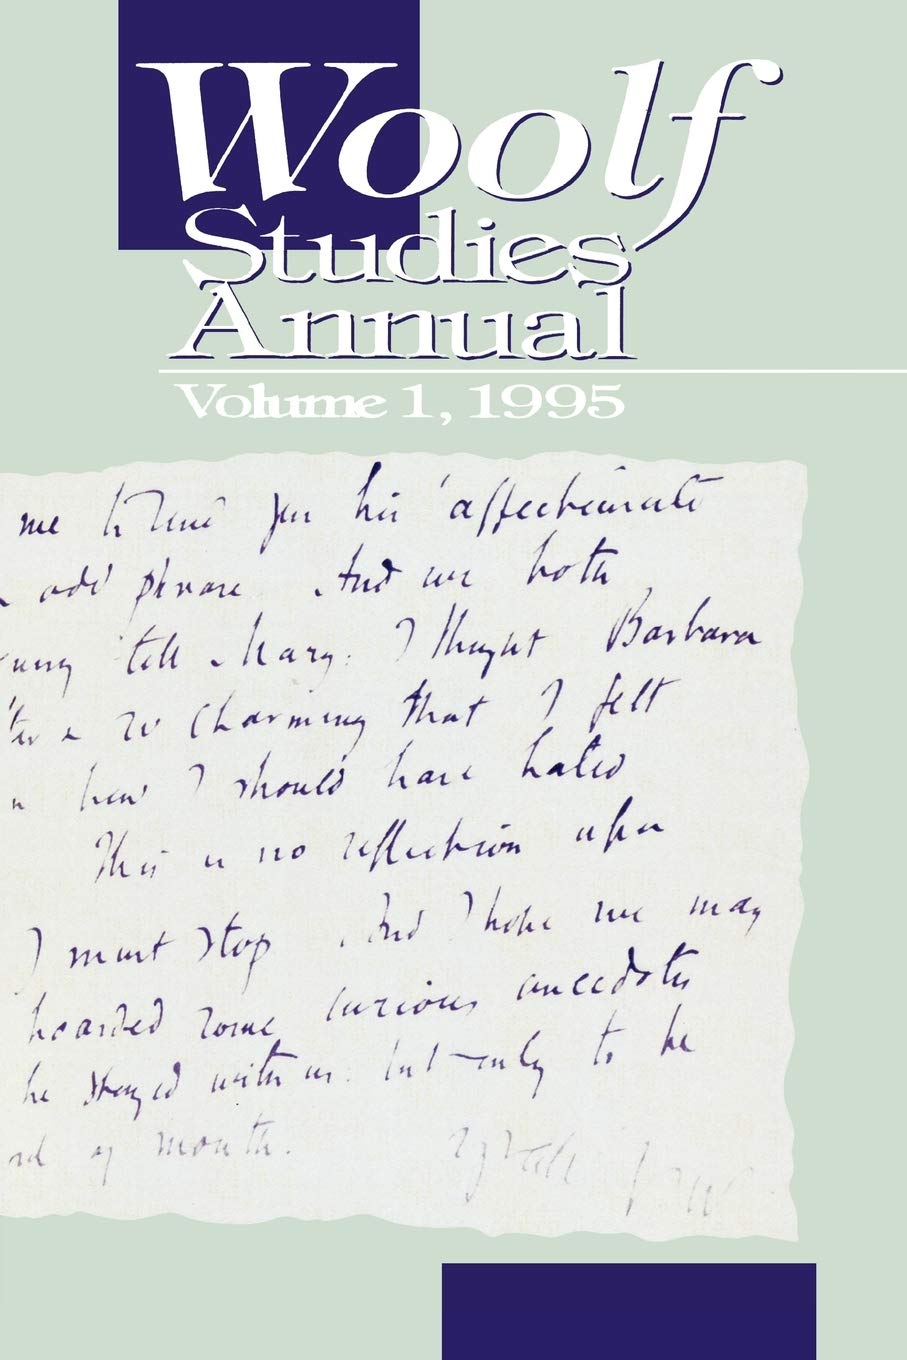 Woolf
Studies
Annual
Volume 1, 1995
me to send you his 'affectionate
odd phrase. And we both
tell Mary: I thought Barbara
so charming that I felt
how I should have hated
This is no reflection upon
I must stop. And I hope we may
hoarded some curious anecdotes
he stayed with us: but only to be
of mouth.